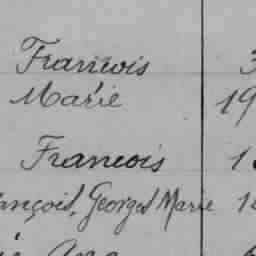 Francois 3
Marie 19
Francois 1
ançois, Georges Marie 1